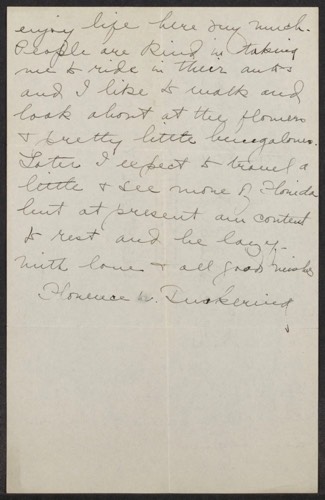 enjoy life here very much.
People are kind in taking
me to ride in their autos
and I like to walk and
look about at the flowers
& pretty little bungalows.
Later I expect to travel a
little & see more of Florida
but at present am content
to rest and be lazy.
With love & all good wishes
Florence